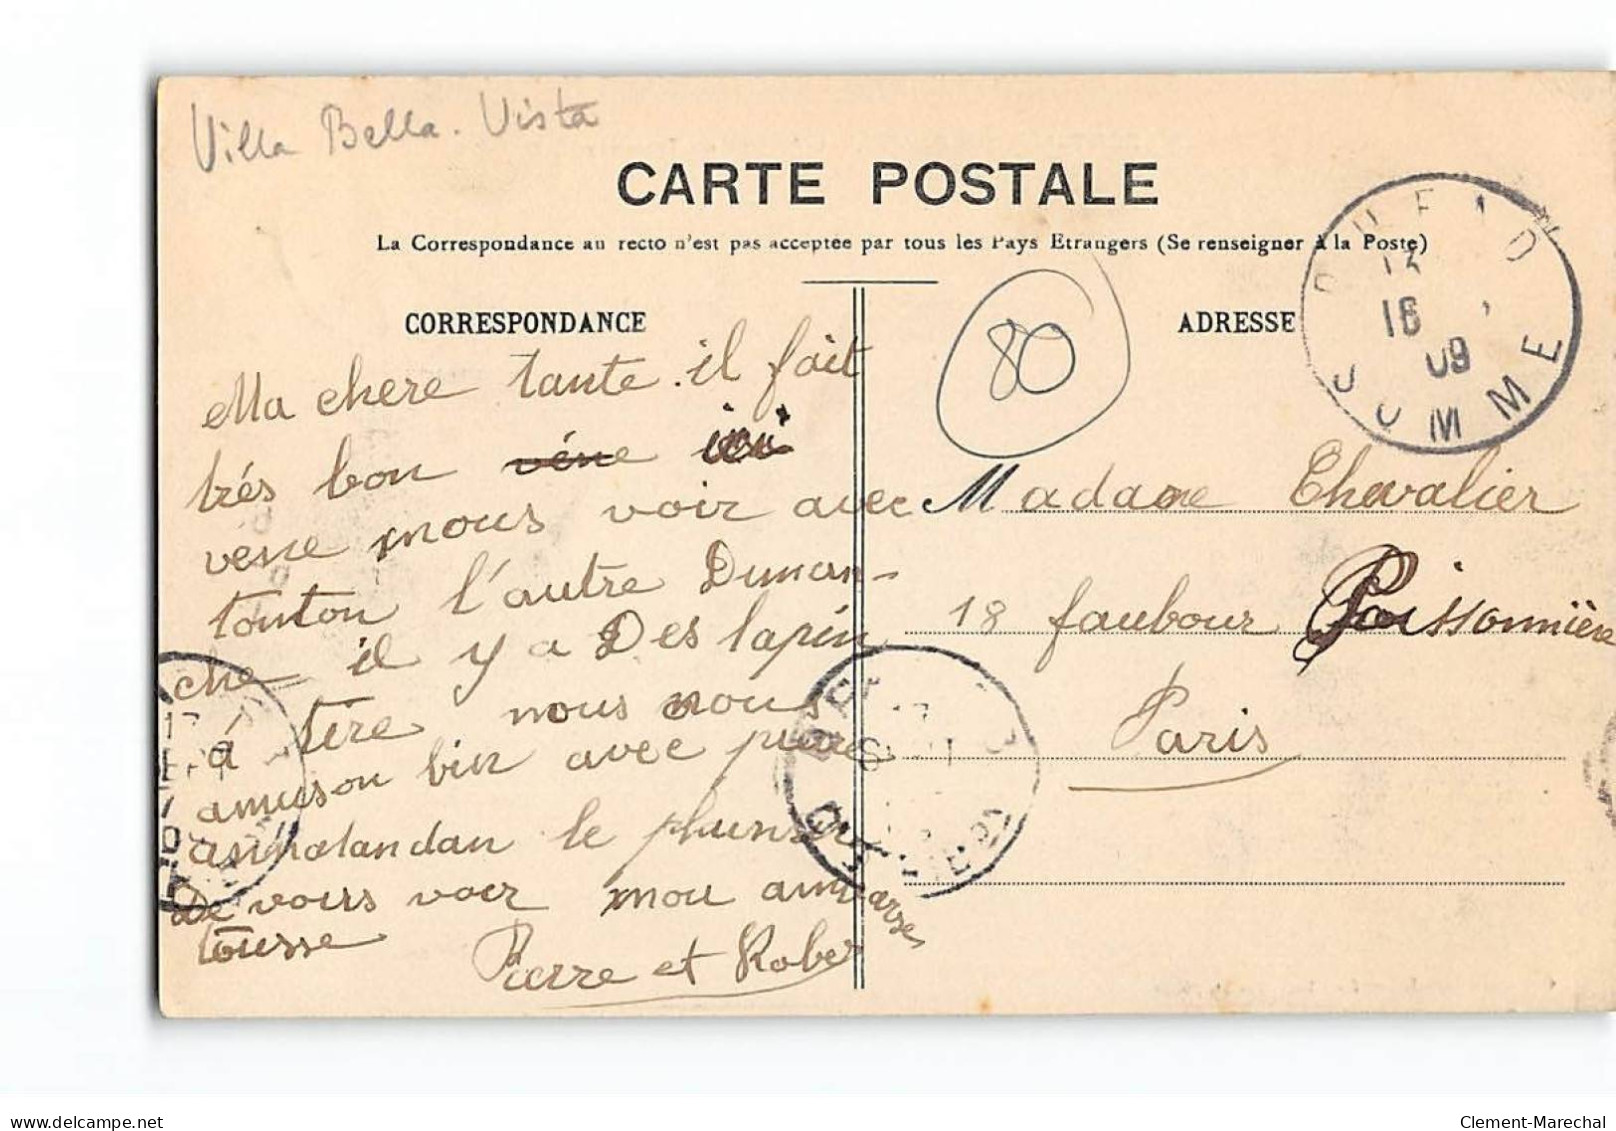 Villa Bella-Vista
CARTE POSTALE
La Correspondance au recto n'est pas acceptée par tous les Pays Etrangers (Se renseigner à la Poste)
CORRESPONDANCE
ADRESSE
80
16
09
SOMME
Ma chere tante il fait
trés bon véne ici
vene nous voir avec
tonton l'autre Diman-
che il y a Des lapin
á tire nous nous
amuson bin avec pierre
an natandan le plaisir
De vous voir nou ambrasse
tousse
Pierre et Rober
Madame Chevalier
18 faubour Poissonnière
Paris
delcampe.net
Clement-Marechal